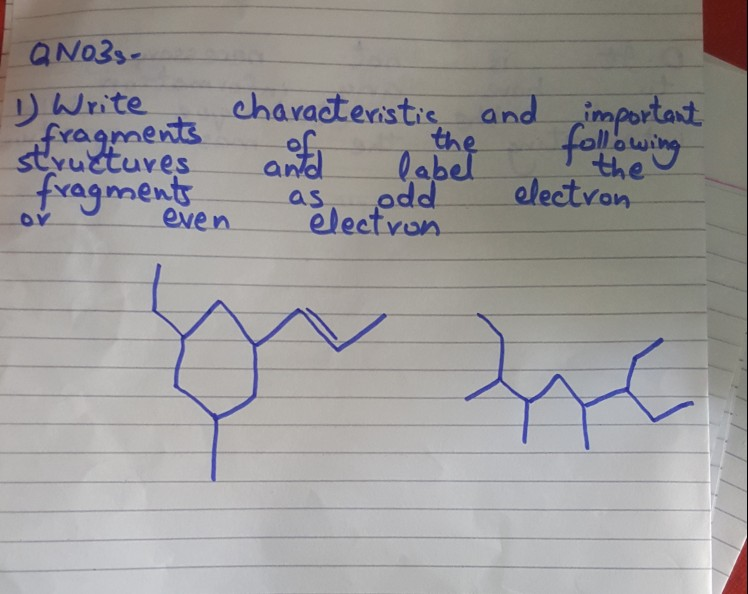 QNO3s-
1) Write characteristic and important
fragments of the following
structures and label the
fragments as odd electron
or even electron